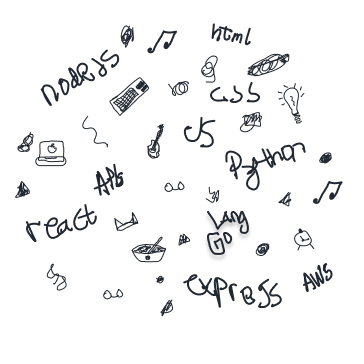 html
nodeJS
CSS
JS
Python
APIs
react
Lang
Go
expreJS
AWS